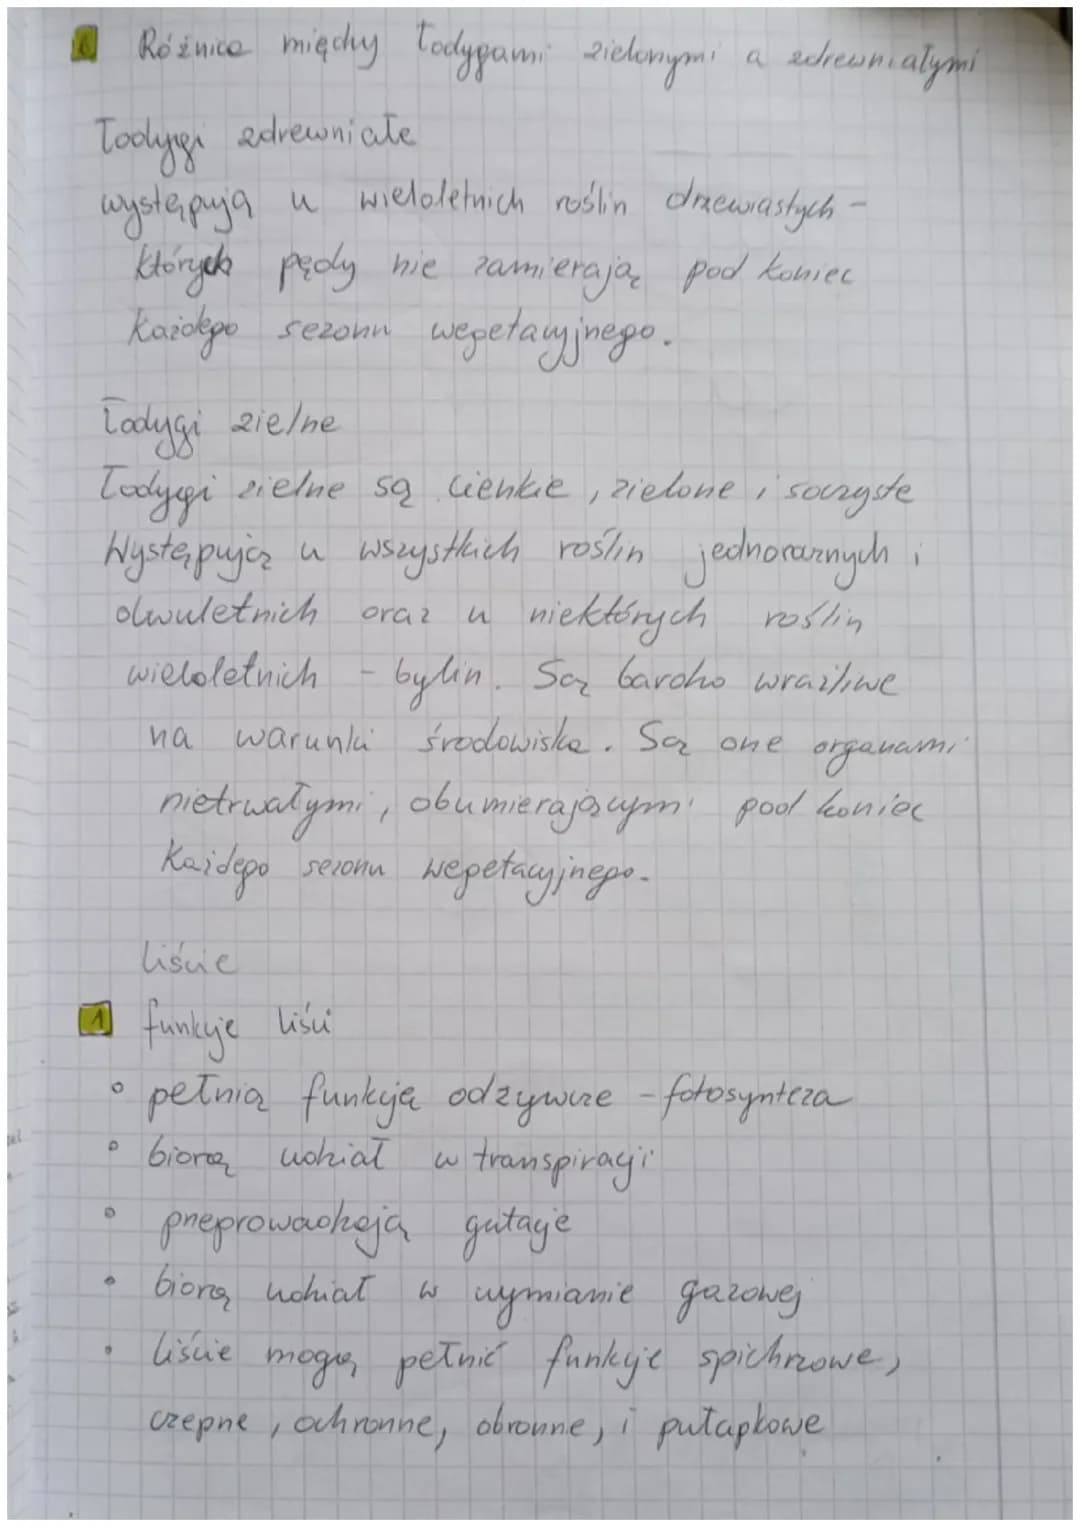 6 Różnice między łodygami zielonymi a zdrewniałymi
Łodygi zdrewniałe
występują u wieloletnich roślin drzewiastych -
których pędy nie zamierają pod koniec
każdego sezonu wegetacyjnego.
Łodygi zielne
Łodygi zielne są cienkie, zielone i soczyste
Występują u wszystkich roślin jednorarznych i
dwuletnich oraz u niektórych roślin
wieloletnich - bylin. Są bardzo wrażliwe
na warunki środowiska. Są one organami
nietrwałymi, obumierającymi pod koniec
każdego sezonu wegetacyjnego.
liście
1 funkcje liści
• pełnią funkcją odżywcze - fotosynteza
• biorą udział w transpiracji
• przeprowadzają gutacje
• biorą udział w wymianie gazowej
• liście mogą pełnić funkcje spichrzowe,
czepne, ochronne, obronne, i pułapkowe